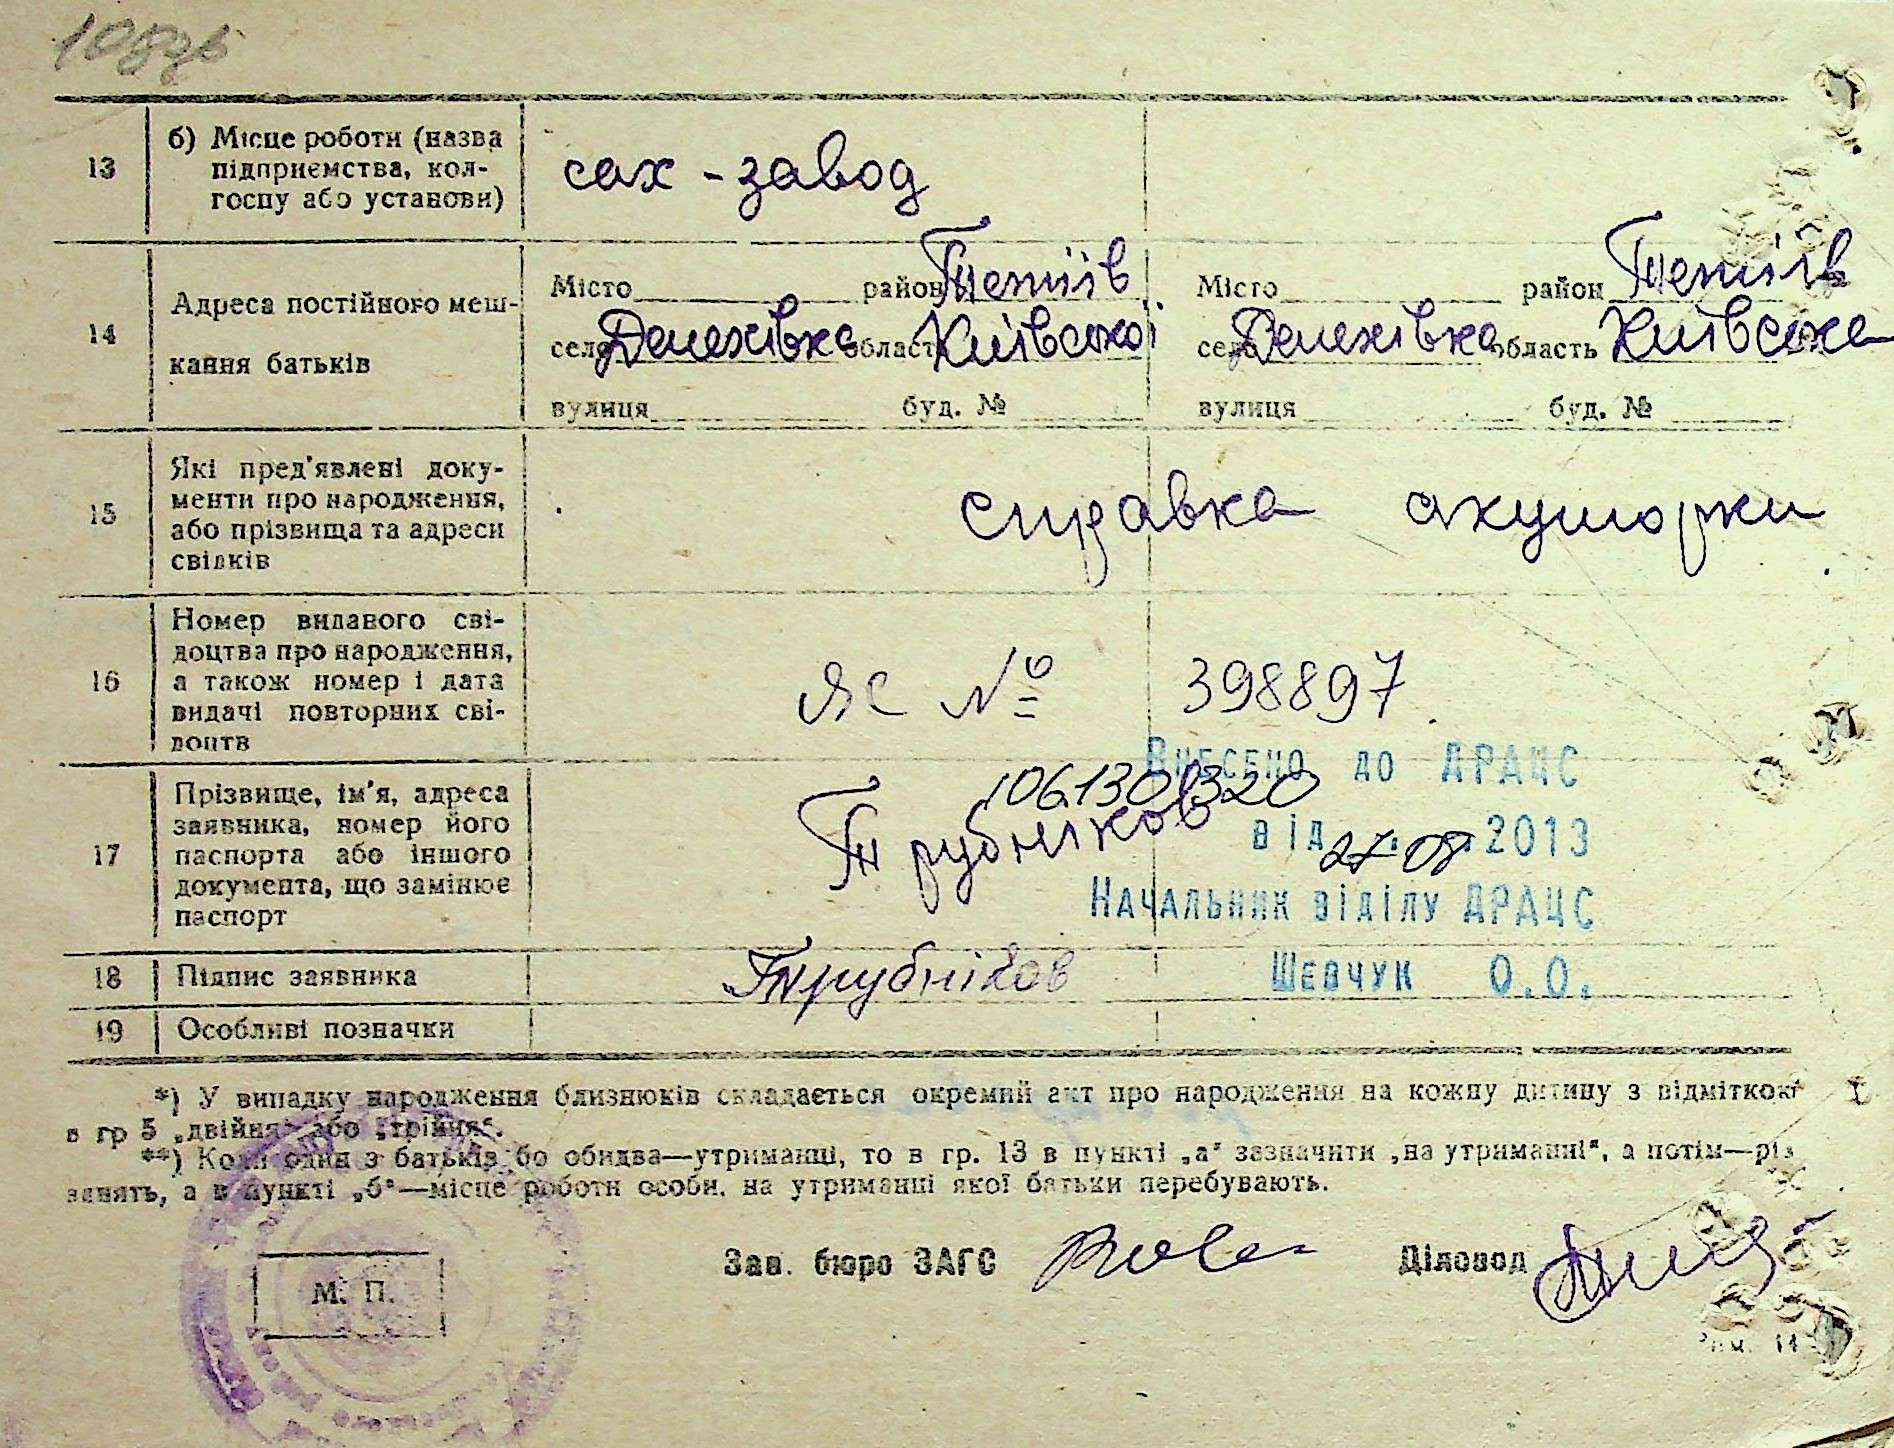 13
б) Місце роботи (назва
підприємства, кол-
госпу або установи)
сах - завод
14
Адреса постійного меш-
кання батьків
Місто район Тетіїв
село Денехівка область Київської
вулиця буд. №
Місто район Тетіїв
село Денехівка область Київська
вулиця буд. №
15
Які пред'явлені доку-
менти про народження,
або прізвища та адреси
свідків
справка акушорки
16
Номер виданого сві-
доцтва про народження,
а також номер і дата
видачі повторних сві-
доцтв
ЯС № 398897
17
Прізвище, ім'я, адреса
заявника, номер його
паспорта або іншого
документа, що замінює
паспорт
Трубніков
Внесено до ДРАЦС
1061301320
від 27.08.2013
Начальник відділу ДРАЦС
Шевчук О.О.
18
Підпис заявника
Трубніков
19
Особливі позначки
*) У випадку народження близнюків складається окремий акт про народження на кожну дитину з відміткою
в гр 5 „двійня" або „трійня".
**) Коли один з батьків бо обидва—утриманці, то в гр. 13 в пункті „а" зазначити „на утриманні", а потім—рід
занять, а в пункті „б"—місце роботи особи, на утриманні якої батьки перебувають.
М. П.
Зав. бюро ЗАГС
Діловод